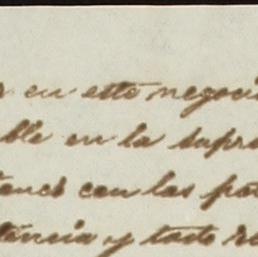 en este negoci
ble en la supr
con las po
tencia y todo re